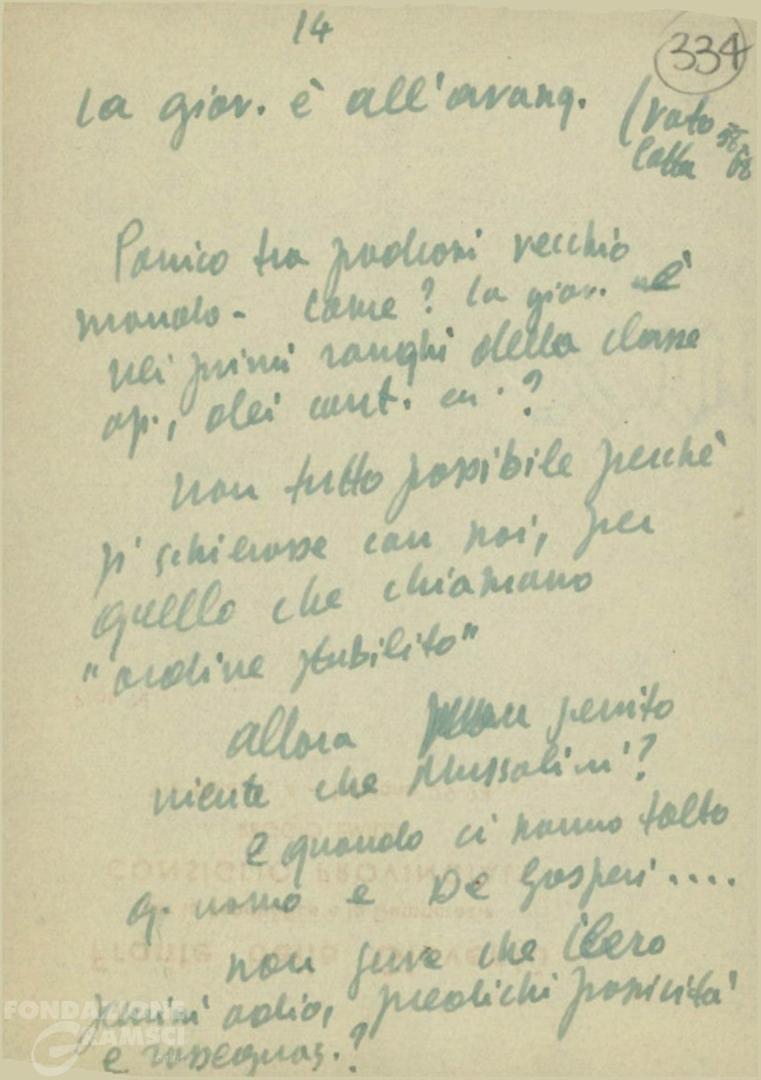 14
334
la giov. è all'avang. (voto
lotta
Panico tra padroni vecchio
mondo - Come? la giov. è
nei primi ranghi della classe
op., dei cont. ?
non tutto possibile perchè
si schierasse con noi, per
quello che chiamano
"ordine stabilito"
allora servito
niente che Mussolini?
e quando ci hanno tolto
q. uomo e De Gasperi....
non serve che clero
semini odio, predichi passività
e rassegnaz.?
FONDAZIONE
GRAMSCI